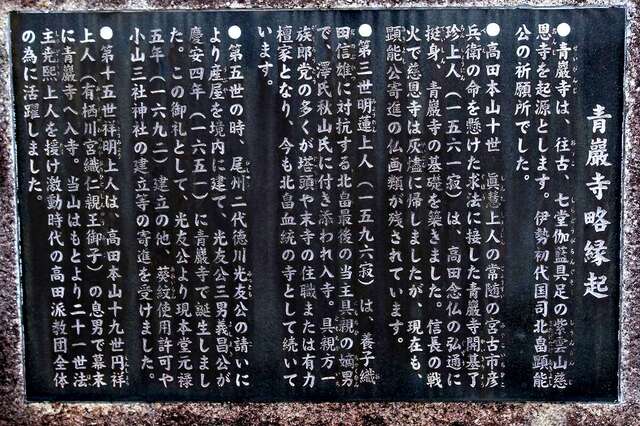 青巖寺略縁起
●青巖寺は、往古、七堂伽藍具足の紫雲山慈
恩寺を起源とします。伊勢初代国司北畠顕能
公の祈願所でした。
●高田本山十世 眞慧上人の常随の宮古市彦
兵衛の命を懸けた求法に接した青巖寺開基了
珍上人（一五六一寂）は、高田念仏の弘通に
挺身、青巖寺の基礎を築きました。信長の戦
火で慈恩寺は灰燼に帰しましたが、現在も、
顕能公寄進の仏画類が残されています。
●第三世明蓮上人（一五九六寂）は、養子織
田信雄に対抗する北畠最後の当主具親の嫡男
で、澤氏秋山氏に付き添われ入寺。具親方一
族郎党の多くが塔頭や末寺の住職または有力
檀家となり、今も北畠血統の寺として続いて
います。
●第五世の時、尾州二代徳川光友公の請いに
より産屋を境内に建て、光友公三男義昌公が
慶安四年（一六五一）に青巖寺で誕生しまし
た。この御礼として、光友公より現本堂元禄
五年（一六九二）建立の他、葵紋使用許可や
小山三社神社の建立等の寄進を受けました。
●第十五世祥明上人は、高田本山十九世円祥
上人（有栖川宮織仁親王御子）の息男で幕末
に青巖寺へ入寺。当山はもとより二十一世法
主尭熙上人を援け激動時代の高田派教団全体
の為に活躍しました。